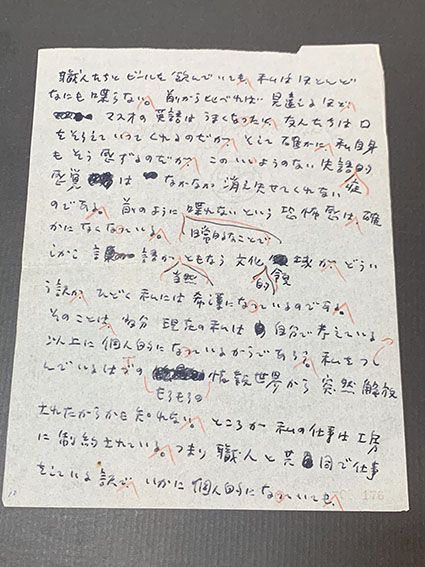 職人たちとビールを飲んでいても、私はほとんど
なにも喋らない。前から比べれば、見違えるほど
マスオの英語はうまくなったと、友人たちは口
をそろえていってくれるのだが、そして確かに、私自身
もそう感ずるのだが、このいいようのない失語症的
感覚は なかなか消え失せてくれない
のである。前のように喋れないという恐怖感は、確
かになくなっている。日常的なことで
しかし言語が当然ともなう文化的領域が、どうい
う訳か、ひどく私には希薄になっているのである。
そのことは、多分 現在の私は自分で考えている
以上に個人的になっているからであろう。私をつ
んでいるはずの
もろもろの 伝説世界から突然解放
されたからかも知れない。ところが私の仕事は工房
に制約されている。つまり職人と共同で仕事
をしている訳で、いかに個人的になっていても、
176